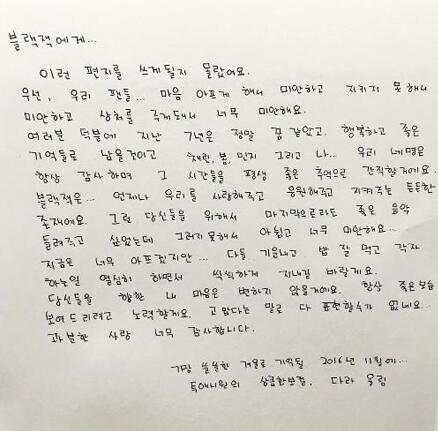 블랙잭에게...
이런 편지를 쓰게될지 몰랐어요.
우선, 우리 팬들... 마음 아프게 해서 미안하고 지키지 못해서
미안하고 상처를 주게돼서 너무 미안해요.
여러분 덕분에 지난 7년은 정말 꿈 같았고. 행복하고 좋은
기억들로 남을것이고 채린, 봄, 민지 그리고 나... 우리 네명은
항상 감사하며 그 시간들을 평생 좋은 추억으로 간직할거에요.
블랙잭은... 언제나 우리를 사랑해주고 응원해주고 지켜주는 든든한
존재에요. 그런 당신들을 위해서 마지막으로라도 좋은 음악
들려주고 싶었는데 그러지못해서 아쉽고 너무 미안해요...
지금은 너무 아프겠지만... 다들 기운내고 밥 잘 먹고 각자
하는일 열심히 하면서 씩씩하게 지내길 바랄게요.
당신들을 향한 내 마음은 변하지 않을거에요. 항상 좋은모습
보여드리려고 노력할게요. 고맙다는 말로 다 표현할수가 없네요...
과분한 사랑 너무 감사합니다.
가장 쓸쓸한 겨울로 기억될 2016년 11월에...
투애니원의 상큼한보컬. 다라 올림